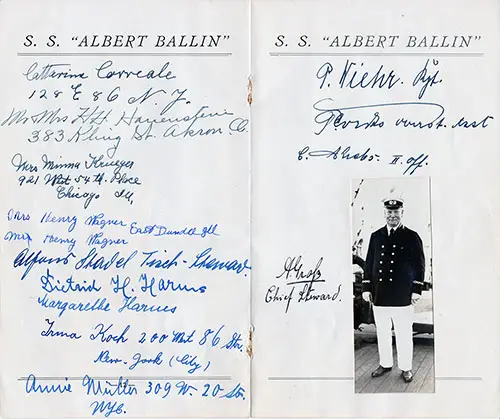 S. S. "ALBERT BALLIN"
Catterina Correale
128 E 86 N. Y.
Mr Mrs H. H. Hauenstein
383 Kling St. Akron O.
Mrs Minna Krueger
921 West 54th Place
Chicago Ill,
Mrs Henry Wagner East Dundee Ill
Mr Henry Wagner
Alfons Stadel Tisch-Steward
Dietrich H. Harms
Margarethe Harms
Irma Koch 200 West 86 Str.
New-York (City)
Annie Mütter 309 W. 20-Str.
NYC.
S. S. "ALBERT BALLIN"
P. Wiehr. Kpt.
II. Off.
A. Groß
Chief Steward.